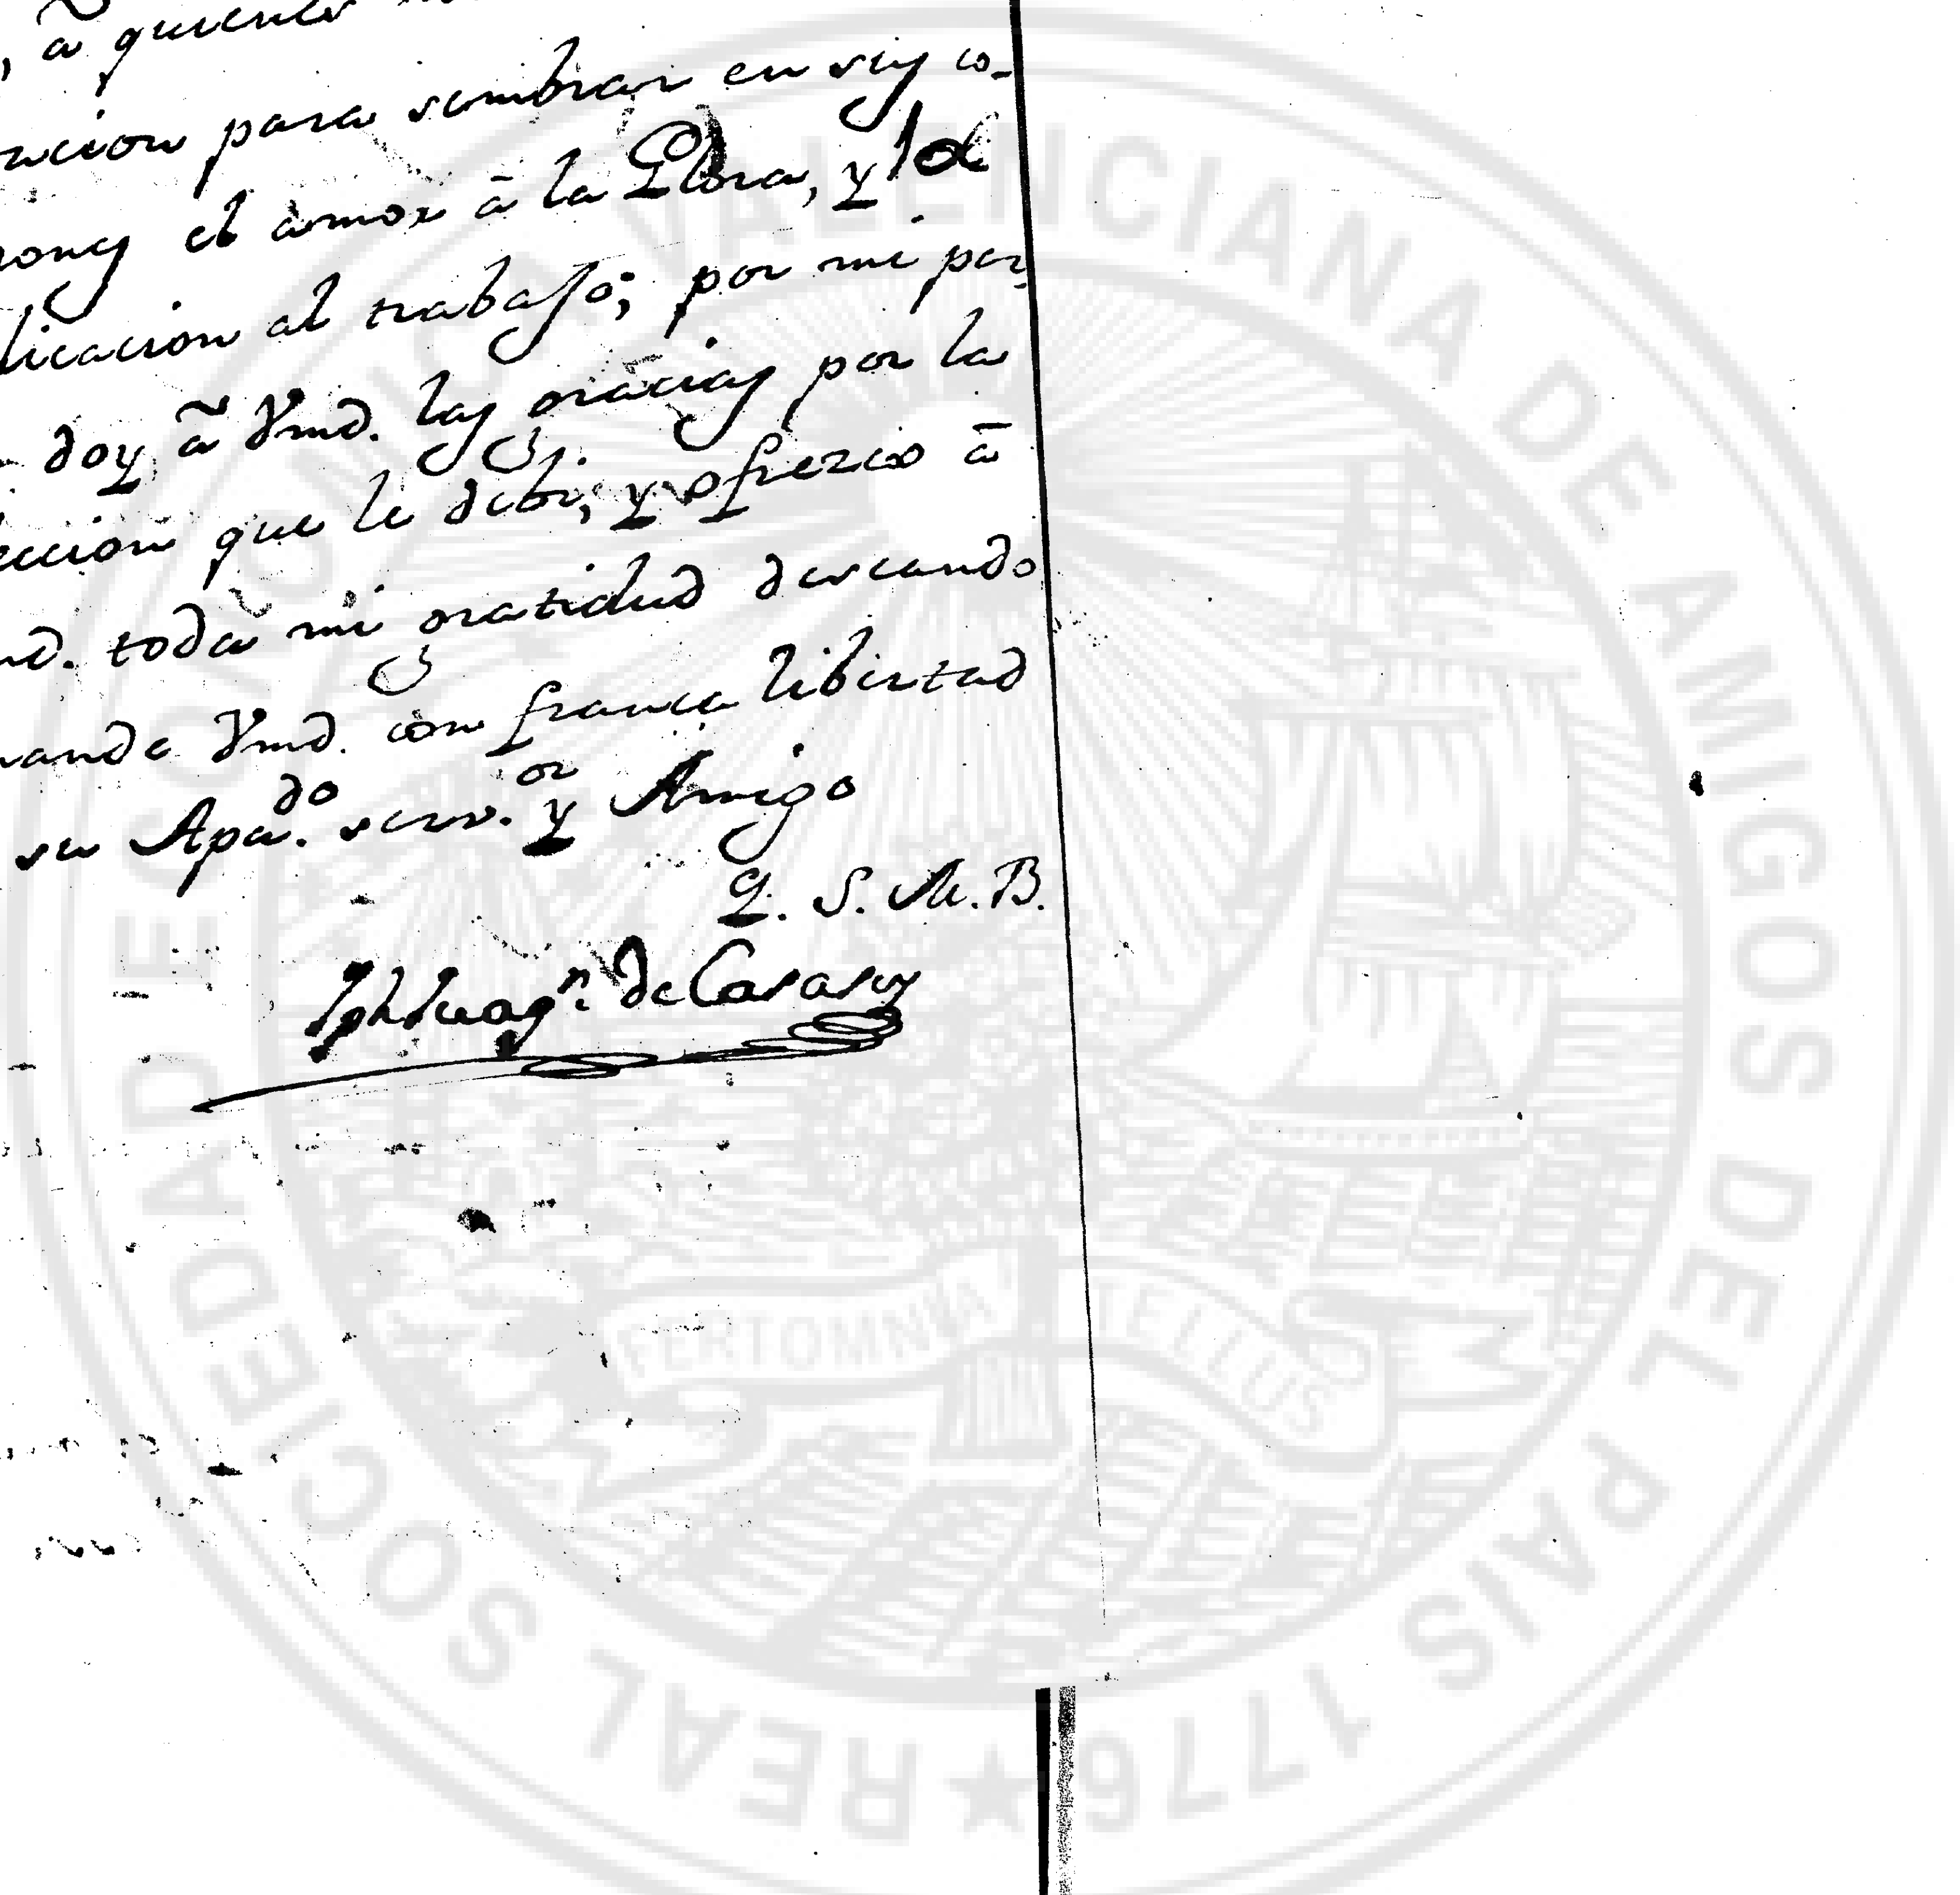 , â quienes
racion para sembrar en sus co-
rones el amor â la Gloria, y la
licacion al trabajo; por mi par
doy â Vmd. las gracias por la
eccion que le debi, y ofrezco â
md. toda mi gratitud deseando
mande Vmd. con franca libertad
su Apa.do serv.or y Amigo
Q. S. M. B.
Jph Juaqn. de Casasus
REAL SOCIEDAD ECONOMICA VALENCIANA DE AMIGOS DEL PAIS 1776
FERT OMNIA TELLUS